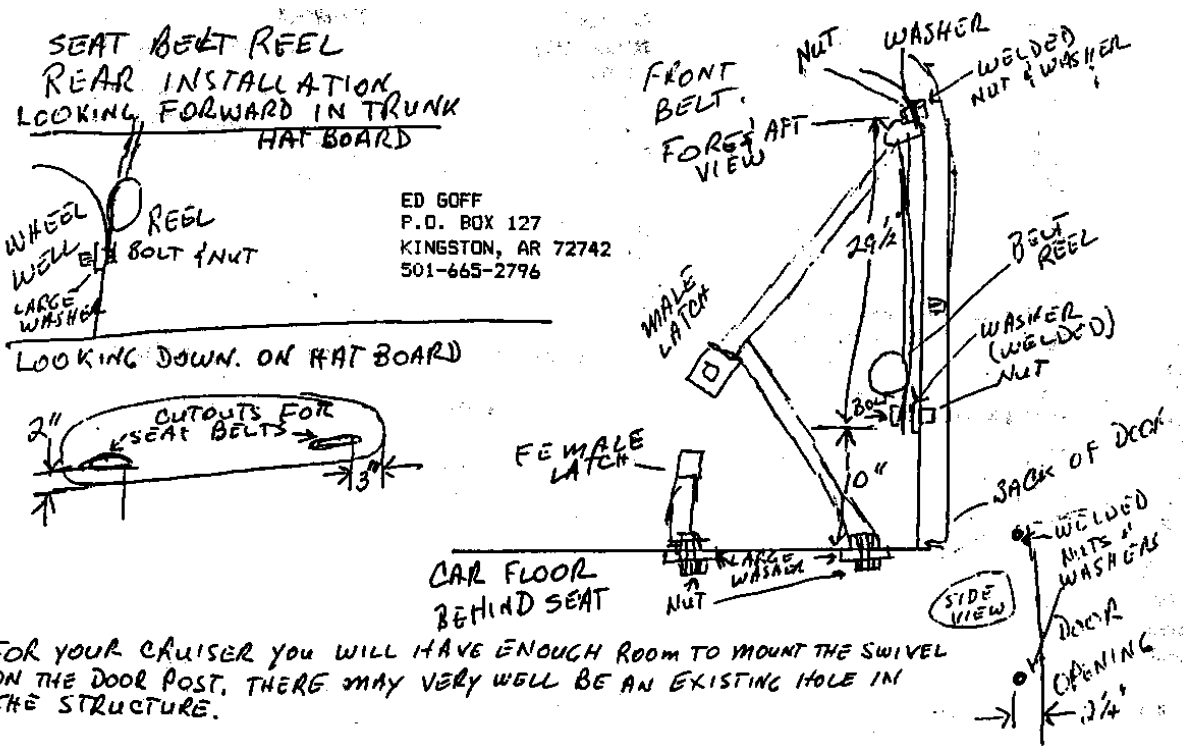 SEAT BELT REEL
REAR INSTALLATION
LOOKING FORWARD IN TRUNK
HAT BOARD
WHEEL
WELL
REEL
BOLT & NUT
LARGE
WASHER
ED GOFF
P.O. BOX 127
KINGSTON, AR 72742
501-665-2796
LOOKING DOWN. ON HAT BOARD
2"
CUTOUTS FOR
SEAT BELTS
3"
FRONT
BELT.
FORE & AFT
VIEW
NUT
WASHER
WELDED
NUT & WASHER
29 1/2"
BELT
REEL
MALE
LATCH
WASHER
(WELDED)
NUT
BOLT
0"
FEMALE
LATCH
BACK OF DOOR
LARGE
WASHER
NUT
CAR FLOOR
BEHIND SEAT
SIDE
VIEW
WELDED
NUTS &
WASHERS
DOOR
OPENING
FOR YOUR CRUISER YOU WILL HAVE ENOUGH ROOM TO MOUNT THE SWIVEL
ON THE DOOR POST. THERE MAY VERY WELL BE AN EXISTING HOLE IN
THE STRUCTURE.